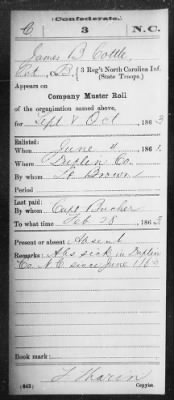 (Confederate.)
C 3 N.C.
James B. Cottle
Pvt, Co. B, 3 Reg't North Carolina Inf.
(State Troops.)
Appears on
Company Muster Roll
of the organization named above,
for Sept & Oct, 1863
Enlisted:
When June 4, 1861.
Where Duplin Co.
By whom Lt Brown
Period
Last paid:
By whom Capt
To what time Feb 28, 1863
Present or absent Absent
Remarks: Abs sick in Duplin
Co. N.C. since June 1863
Book mark:
(642)
Copyist.